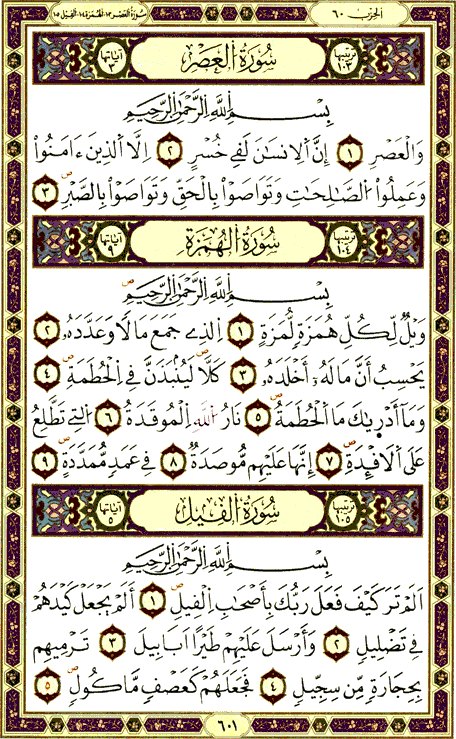 الحزب ٦٠
سُورَةُ العَصْرِ ١٠٣ - الهُمَزَة ١٠٤ - الفِيل ١٠٥
ترتيبها ١٠٣ سُورَةُ العَصْرِ آياتها ٣
بِسْمِ اللَّهِ الرَّحْمَٰنِ الرَّحِيمِ
وَالْعَصْرِ ١ إِنَّ اَلِانسَٰنَ لَفِے خُسْرٍ ٢ اِلَّا اَلذِينَ ءَامَنُواْ
وَعَمِلُواْ اُلصَّٰلِحَٰتِ وَتَوَاصَوْاْ بِالْحَقِّ وَتَوَاصَوْاْ بِالصَّبْرِ ٣
ترتيبها ١٠٤ سُورَةُ الهُمَزَةِ آياتها ٩
بِسْمِ اللَّهِ الرَّحْمَٰنِ الرَّحِيمِ
وَيْلٌ لِّكُلِّ هُمَزَةٍ لُّمَزَةٍ ١ اِلذِے جَمَعَ مَالًا وَعَدَّدَهُۥ ٢
يَحْسِبُ أَنَّ مَالَهُۥٓ أَخْلَدَهُۥ ٣ كَلَّا لَيُنۢبَذَنَّ فِے اِلْحُطَمَةِ ٤
وَمَآ أَدْر۪ىٰكَ مَا اَلْحُطَمَةُ ٥ نَارُ اُللَّهِ اِلْمُوقَدَةُ ٦ اُلتِے تَطَّلِعُ
عَلَى اَلَافْـِٕدَةِ ٧ إِنَّهَا عَلَيْهِم مُّوصَدَةٌ ٨ فِے عَمَدٍ مُّمَدَّدَةٍ ٩
ترتيبها ١٠٥ سُورَةُ الفِيلِ آياتها ٥
بِسْمِ اللَّهِ الرَّحْمَٰنِ الرَّحِيمِ
أَلَمْ تَرَ كَيْفَ فَعَلَ رَبُّكَ بِأَصْحَٰبِ اِلْفِيلِ ١ أَلَمْ يَجْعَلْ كَيْدَهُمْ
فِے تَضْلِيلٍ ٢ وَأَرْسَلَ عَلَيْهِمْ طَيْرًا اَبَابِيلَ ٣ تَرْمِيهِم
بِحِجَارَةٍ مِّن سِجِّيلٍ ٤ فَجَعَلَهُمْ كَعَصْفٍ مَّاكُولٍ ٥
٦٠١